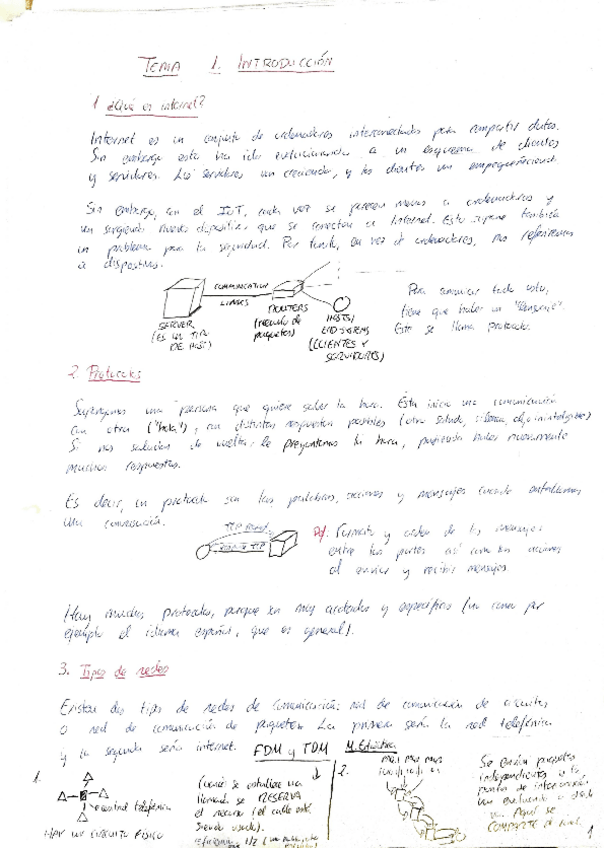 TEMA 1. INTRODUCCIÓN
1 ¿Qué es internet?
Internet es un conjunto de ordenadores interconectados para compartir datos.
Sin embargo esto ha ido evolucionando a un esquema de clientes
y servidores. Los servidores van creciendo, y los clientes van empequeñeciendo.
Sin embargo, con el IoT, cada vez se parecen menos a ordenadores y
van surgiendo nuevos dispositivos que se conectan a Internet. Esto supone también
un problema para la seguridad. Por tanto, en vez de ordenadores, nos referiremos
a dispositivos.
COMMUNICATION
LINKS
SERVER
(ES UN TIPO
DE HOST)
ROUTERS
(reenvío de
paquetes)
HOSTS/
END SYSTEMS
(CLIENTES Y
SERVIDORES)
Para comunicar todo esto,
tiene que haber un "lenguaje".
Esto se llama protocolo.
2. Protocolos
Supongamos una persona que quiere saber la hora. Ésta inicia una comunicación
con otra ("hola"), con distintas respuestas posibles (otro saludo, silencio, algo ininteligible)
Si nos saludan de vuelta, le preguntamos la hora, pudiendo haber nuevamente
muchas respuestas.
Es decir, un protocolo son las palabras, acciones y mensajes cuando entablamos
una conversación.
TCP
TCP
Def. Formato y orden de los mensajes
entre las partes así como las acciones
al enviar y recibir mensajes
Hay muchos protocolos, porque son muy acotados y específicos (no como por
ejemplo el idioma español, que es general).
3. Tipos de redes
Existen dos tipos de redes de comunicación: red de comunicación de circuitos
o red de comunicación de paquetes. La primera sería la red telefónica
y la segunda sería internet. FDM y TDM M. Estadística
1.
central telefónica
HAY UN CIRCUITO FÍSICO
se establece una
llamada se RESERVA
el recurso (el cable está
siendo usado).
2.
Se envían paquetes
independientes
Aquí se
COMPARTE
1